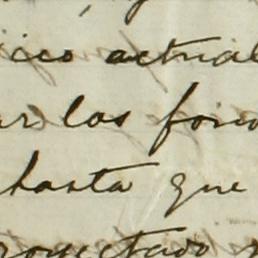 ico actual
ar los fond
hasta que
royectado